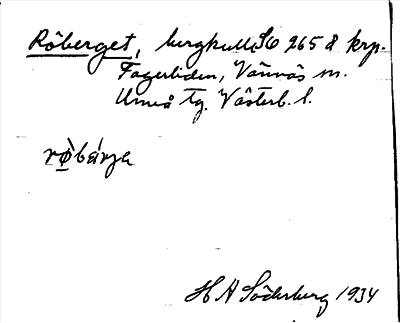 Röberget, bergkulle SO 265 8 krp.
Fagerliden, Vännäs sn.
Umeå Tg. Västerb. l.
H A Söderberg 1934